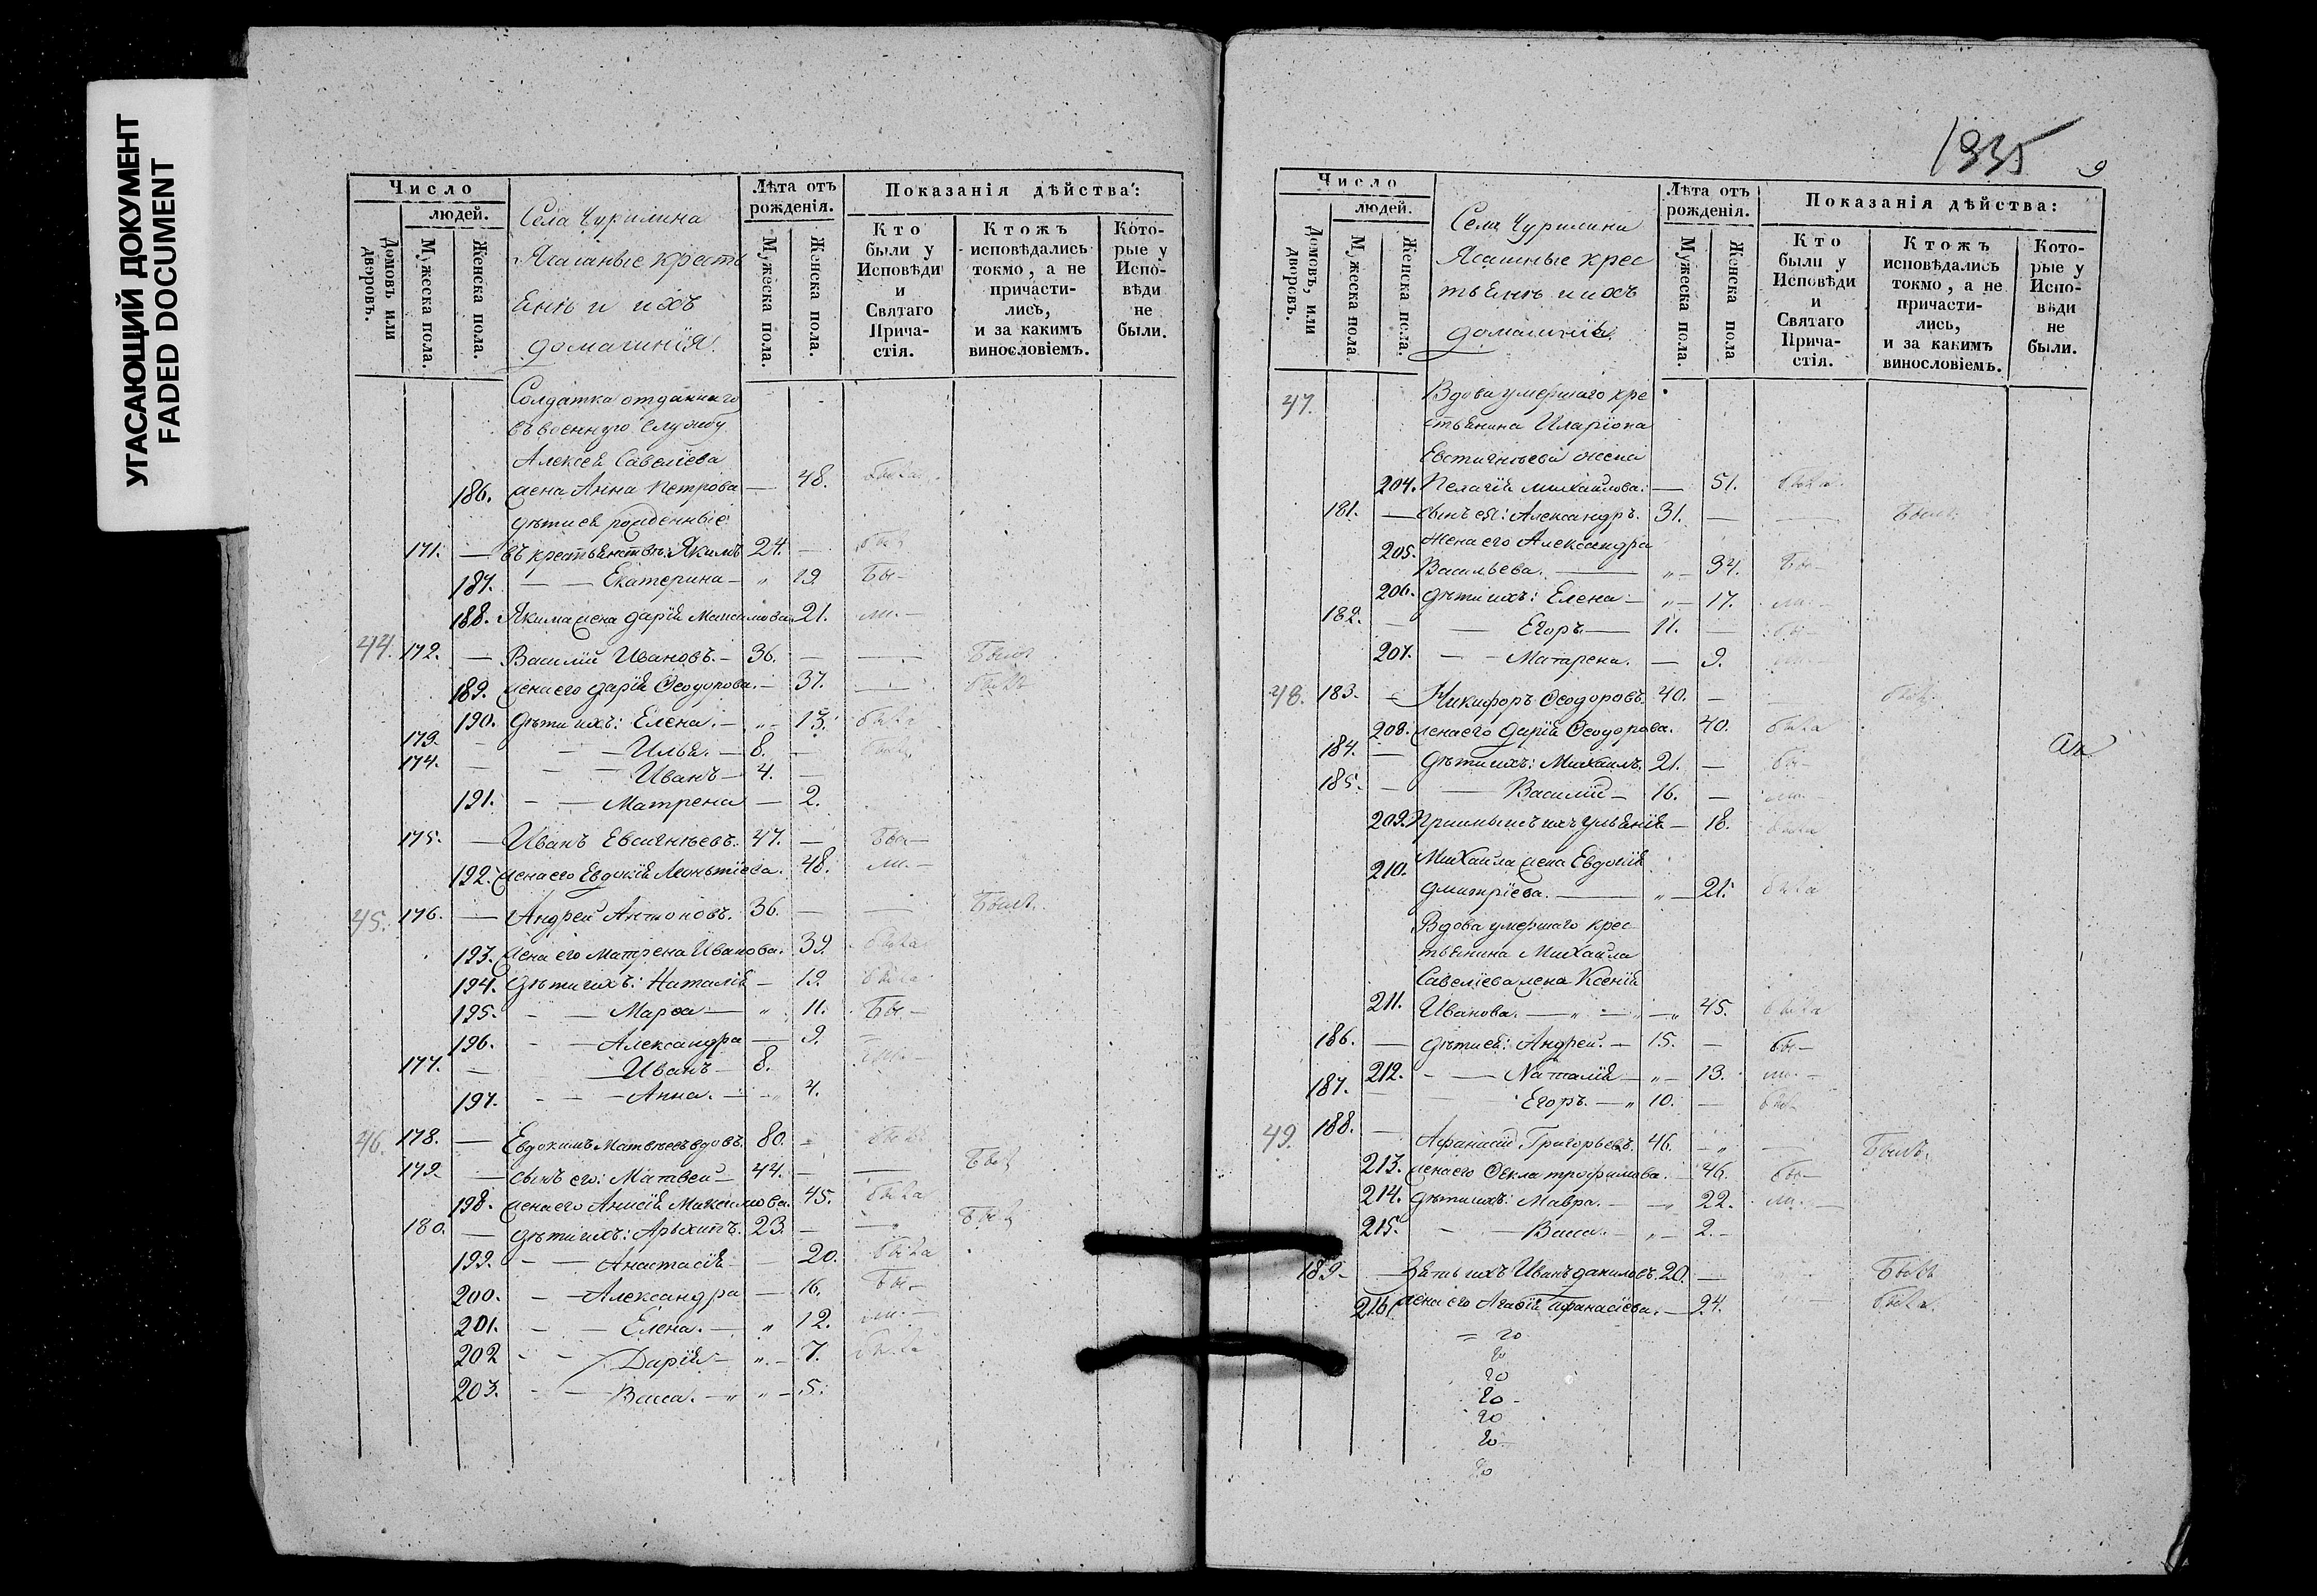 УГАСАЮЩИЙ ДОКУМЕНТ
FADED DOCUMENT
Число
людей.
Домовъ или дворовъ.
Мужеска пола.
Женска пола.
Села Чурилина
Ясашные кресть
яне и ихъ
домашнія
Лѣта отъ рожденія.
Мужеска пола.
Женска пола.
Показанія дѣйства:
Кто были у Исповѣди и Святаго Прича-стія.
Ктожъ исповѣдались токмо, а не причасти-лись, и за какимъ винословіемъ.
Кото-рые у Испо-вѣди не были.
Солдатка отданнаго
въ военную службу
Алексея Савелiева
186. жена Анна Петрова — 48. была
дѣти ея рожденные
171. — въ крестьянствѣ: Якимъ 24. —
187. — — Екатерина — „ 19 Бы-
188. Якима жена Дарія Максимова. 21. ли. —
44. 172. — Василій Ивановъ. — 36. — — Былъ
189. жена его Дарія Ѳеодорова. — 37. —
190. дѣти ихъ: Елена. — „ 13. была
173. — — Илья. — 8. —
174. — — Иванъ — 4. —
191. — — Матрена — 2.
175. — Иванъ Евсигнѣевъ. 47. — Бы —
192. жена его Евдокія Леонтіева. 48. ли. —
45. 176. — Андрей Антоновъ. 36. — — Былъ.
193. жена его Матрена Иванова. 39. была
194. дѣти ихъ: Наталія — 19. была
195. — — Марѳа — „ 11. Бы —
196. — — Александра — 9.
177. — — Иванъ — 8.
197. — — Анна. — „ 4.
46. 178. — Евдокимъ Матвѣевъ вдовъ. 80. —
179 — сынъ его: Матвей — 44. — — Былъ
198. жена его Анисія Максимова. 45. была
180. — дѣти ихъ: Архипъ. 23. — — Былъ
199. — — Анастасія — 20. была
200. — — Александра — 16. Бы-
201. — — Елена. — „ 12. ли. —
202 — — Дарія — „ — 7. была
203. — — Васса. — „ „ — 5.
1835
9
Число
людей.
Домовъ, или дворовъ.
Мужеска пола.
Женска пола.
Села Чурилина
Ясашные крес
тьяне и ихъ
домашнія
Лѣта отъ рожденія.
Мужеска пола.
Женска пола
Показанія дѣйства:
Кто были у Исповѣди и Святаго Прича-стія.
Ктожъ исповѣдались токмо, а не причасти-лись, и за какимъ винословіемъ.
Кото-рые у Испо-вѣди не были.
47. Вдова умершаго кре
стьянина Иларіона
Евстигнѣева жена
204. Пелагія Михайлова. — 51. была
181. — сынъ ея: Александръ. 31. — — Былъ.
205. Жена его Александра
Васильева. — „ — 34. Бы —
206. дѣти ихъ: Елена — „ — 17. ли. —
182. — — Егоръ. — 11. —
207. — — Матрена. — 9.
48. 183. — Никифоръ Ѳеодоровъ. 40. — — Былъ.
208. жена его Дарія Ѳеодорова. 40. была
184. — дѣти ихъ: Михаилъ. 21. — Бы —
185. — — Василій — 16. — ли. —
209. Ульянія — 18. была
210. Михаила жена Евдокія
Дмитріева. — „ — 21. была
Вдова умершаго крес
тьянина Михаила
Савелiева жена Ксенія
211. Иванова. — „ — „ — „ 45. была
186. — дѣти ея: Андрей. — 15. — Бы —
212. — — Наталія — „ — 13. ли. —
187. — — Егоръ. — „ 10. —
49. 188. — Афанасій Григорьевъ. 46. — „ — Былъ.
213. жена его Ѳекла Трофимова. — 46. Бы —
214. дѣти ихъ: Мавра. — „ 22. ли. —
215. — — Васса. — „ — 2. —
189. — Зять ихъ Иванъ Даниловъ. 20. — Былъ
216. жена его Агафія Афанасіева. — 24. была.